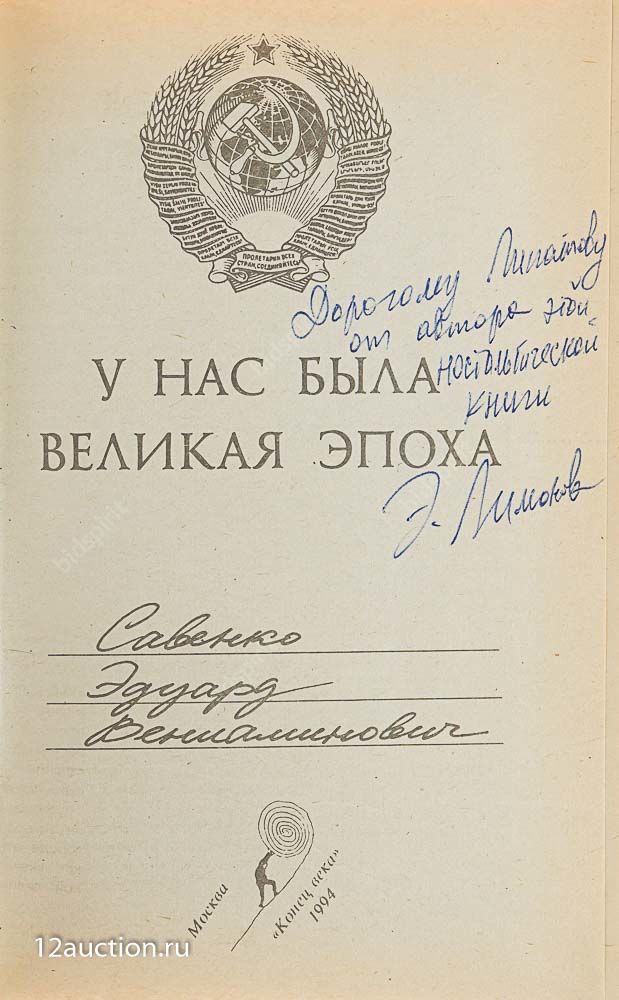 ПРОЛЕТАРИИ ВСЕХ
СТРАН, СОЕДИНЯЙТЕСЬ!
Дорогому
от автора этой
ностальгической
книги
У НАС БЫЛА
ВЕЛИКАЯ ЭПОХА
Э. Лимонов
Савенко
Эдуард
Вениаминович
Москва
«Конец века»
1994
12auction.ru
bidspirit